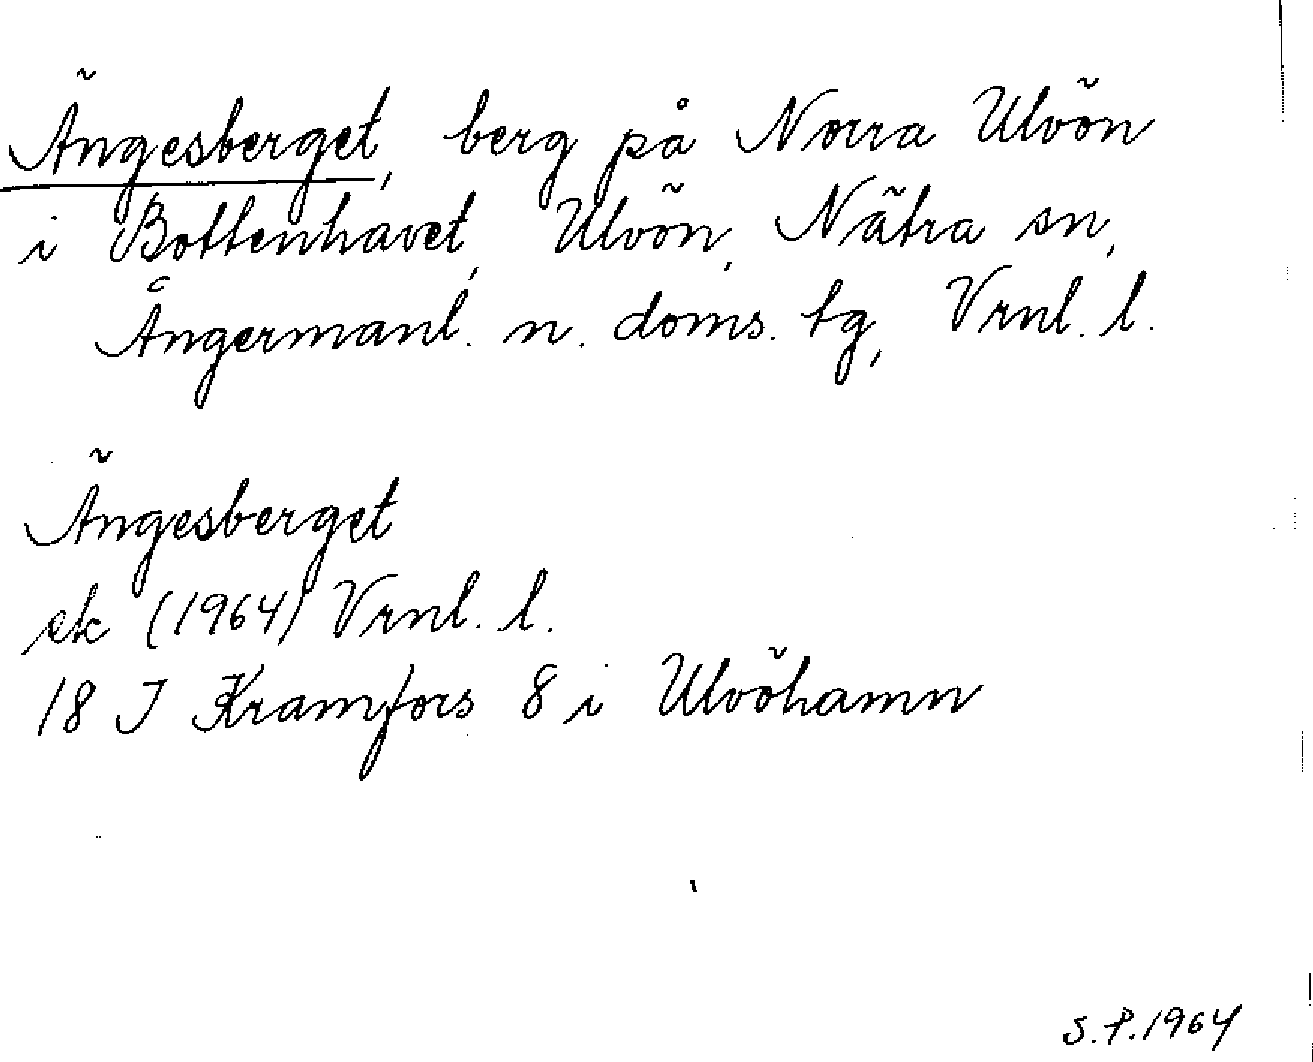 Ängesberget, berg på Norra Ulvön
i Bottenhavet, Ulvön, Nätra sn,
Ångermanl. n. doms. tg, Vrnl. l.
Ängesberget
ek (1964) Vrnl. l.
18 J Kramfors 8 i Ulvöhamn
S.P. 1964